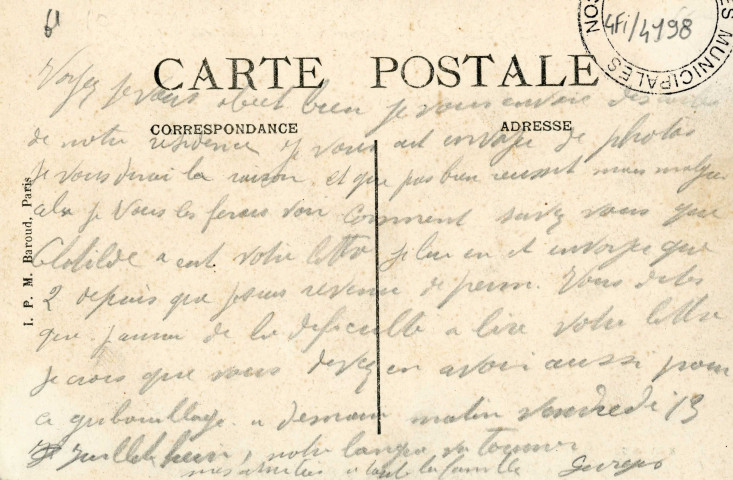 4Fi/4198
MUNICIPALES
CARTE POSTALE
Voyez je vous obeit bien je vous envoie des
CORRESPONDANCE
ADRESSE
de notre residence je vous ait envoye de photos
je vous dirai la raison et que pas bien reussit mais
je vous les ferais voir comment savez vous que
Clotilde a eut votre lettre je lui en et envoyee que
2 depuis que je suis revenu de perm. Vous dites
que j'aurai de la difficulte a lire votre lettre
je crois que vous devez en avoir aussi pour
ce gribouillage a demain matin Vendredi 13
Juillet notre langue va tourner
mes amities a toute la famille Georges
I. P. M. Baroud, Paris